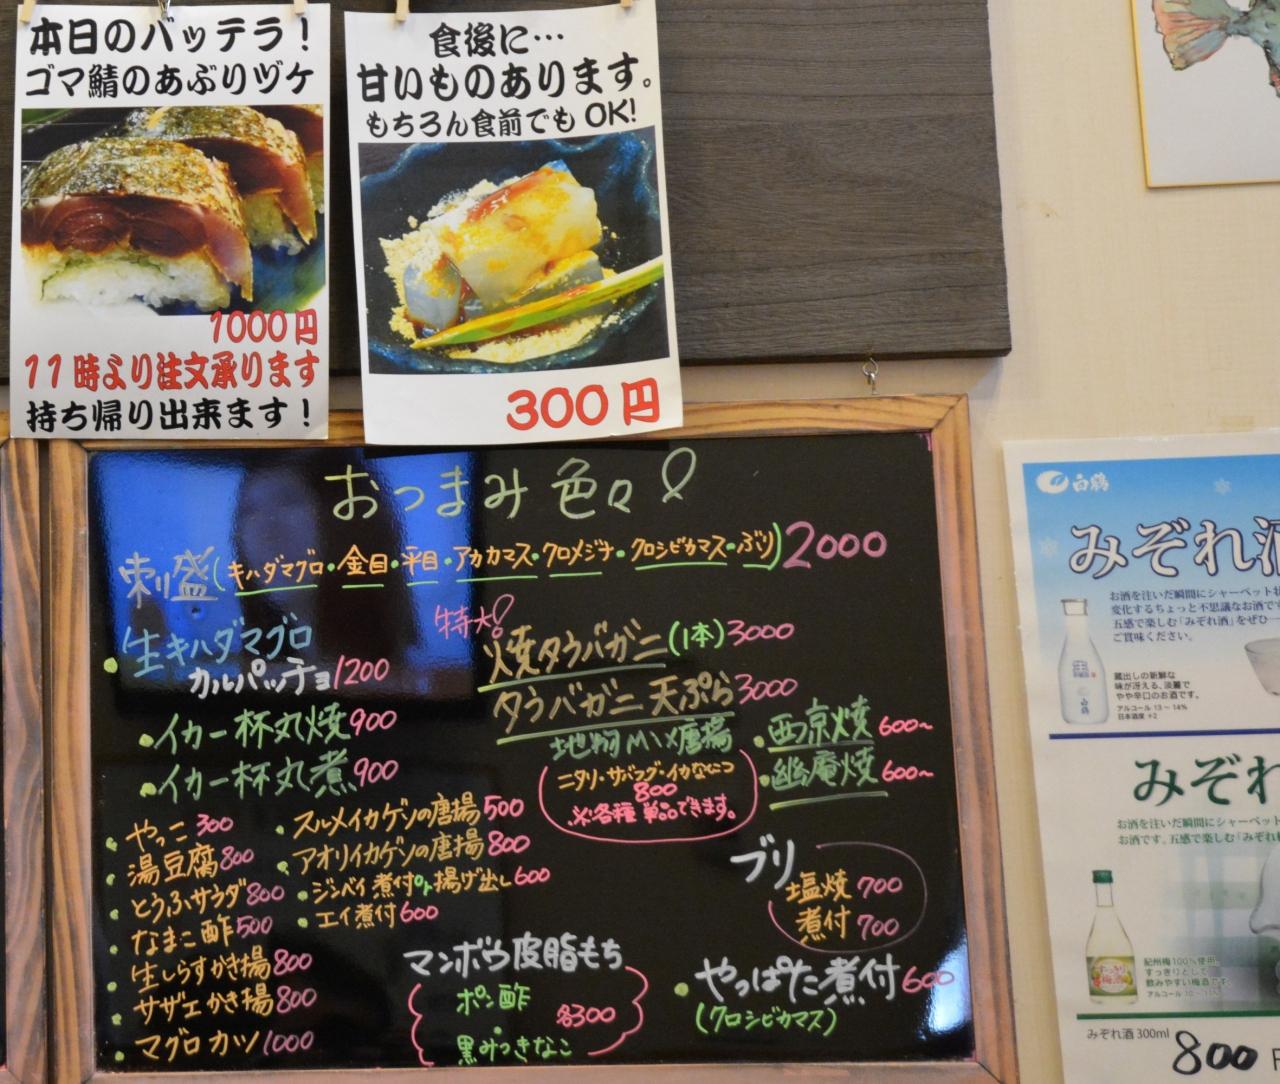 本日のバッテラ！
ゴマ鯖のあぶりヅケ
1000円
11時より注文承ります
持ち帰り出来ます！
食後に…
甘いものあります。
もちろん食前でもOK!
300円
おつまみ色々!
刺盛(キハダマグロ・金目・平目・アカカマス・クロメジナ・クロシビカマス・ぶり)2000
生キハダマグロ
カルパッチョ1200
・イカ一杯丸焼900
・イカ一杯丸煮900
・やっこ300
・湯豆腐800
・とうふサラダ800
・なまこ酢500
・生しらすかき揚800
・サザエかき揚800
・マグロカツ1000
・スルメイカゲソの唐揚500
・アオリイカゲソの唐揚800
・ジンベイ煮付or揚げ出し600
・エイ煮付600
特大!
焼タラバガニ(1本)3000
タラバガニ天ぷら3000
地物MIX唐揚
ニタリ・サバフグ・イカなんこつ
800
※各種単品できます。
・西京焼600~
・幽庵焼600~
ブリ
塩焼700
煮付700
マンボウ皮脂もち
ポン酢
各300
黒みつきなこ
・やっぱた煮付600
(クロシビカマス)
白鶴
みぞれ酒
お酒を注いだ瞬間にシャーベット状
変化するちょっと不思議なお酒で
五感で楽しむ「みぞれ酒」をぜひ
ご賞味ください。
蔵出しの新鮮な
味が冴える、淡麗で
やや辛口のお酒です。
アルコール 13～14%
日本酒度 +2
みぞれ
お酒を注いだ瞬間にシャーベット
お酒です。五感で楽しむ「みぞれ
紀州梅100%使用。
すっきりとして
飲みやすい梅酒です。
みぞれ酒 300ml
800